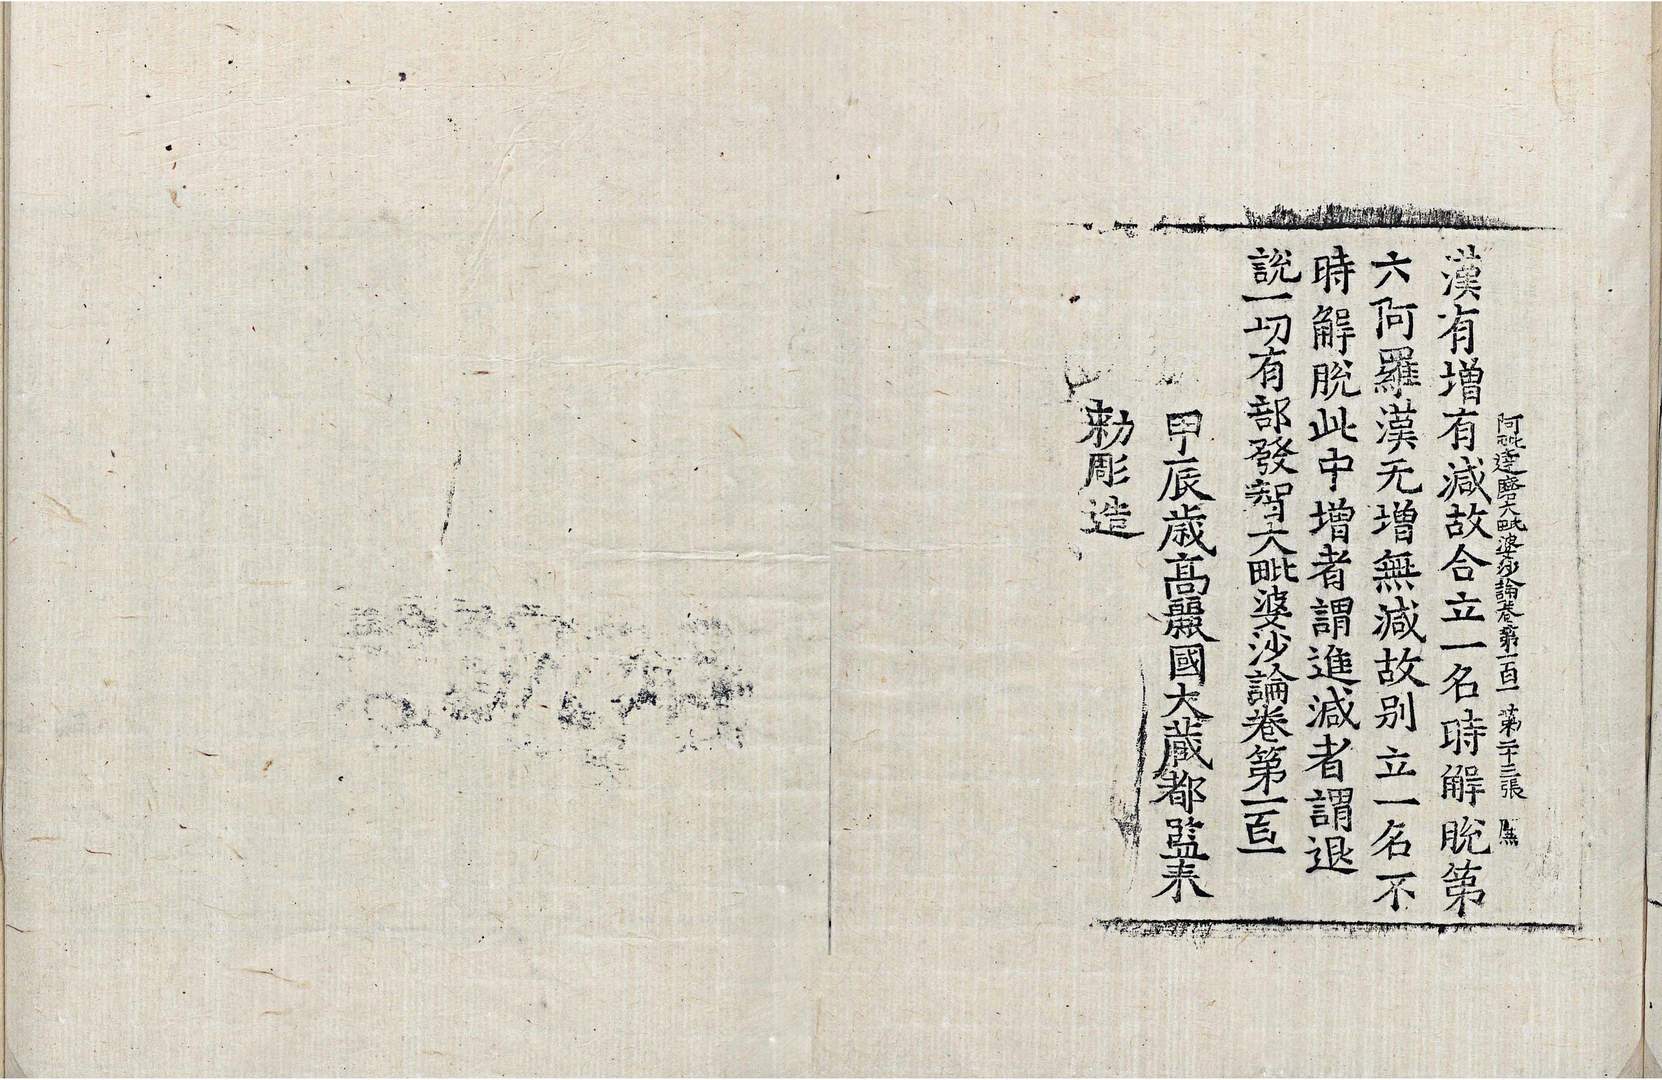 阿毗達磨大毗婆沙論卷第一百一 第二十三張
漢有增有減故合立一名時解脫第
六阿羅漢无增無減故別立一名不
時解脫此中增者謂進減者謂退
說一切有部發智大毗婆沙論卷第一百一
甲辰歲高麗國大藏都監奉
勅彫造